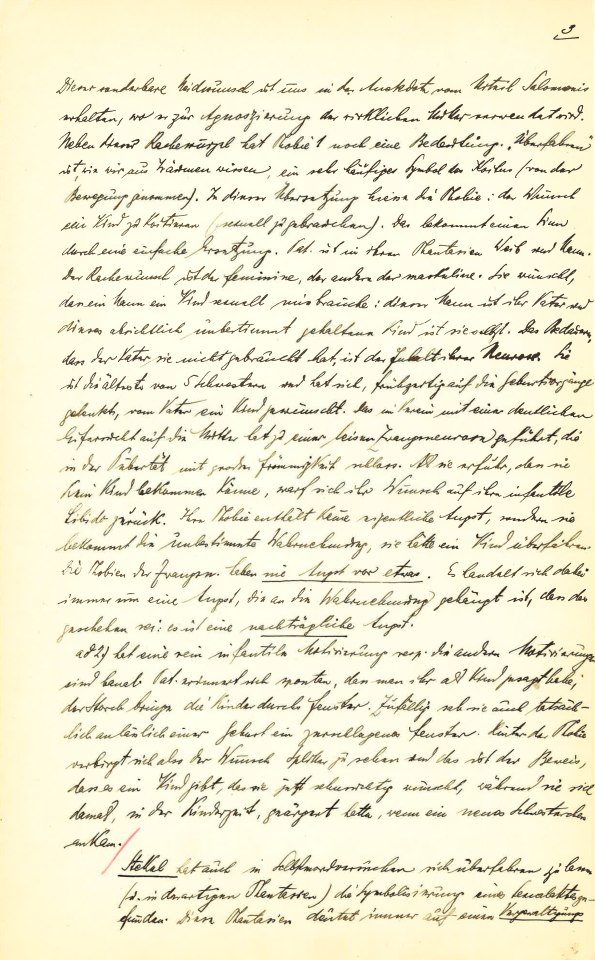 3
Dieser sonderbare Neidwunsch ist uns in der Anekdote vom Urteil Salomonis
erhalten, wo er zur Agnoszierung der wirklichen Mutter verwendet wird.
Neben dieser Rachewurzel hat Phobie 1 noch eine Bedeutung. „Überfahren"
ist, wie wir aus Träumen wissen, ein sehr häufiges Symbol des Koitus (von der
Bewegung genommen). In dieser Übersetzung hiesse die Phobie: der Wunsch
ein Kind zu koitieren (sexuell zu gebrauchen). Das bekommt einen Sinn
durch eine einfache Ersetzung. Pat. ist in ihren Phantasien Weib und Mann.
Der Rachewunsch ist der feminine, der andere der maskuline. Sie wünscht,
dass ein Mann ein Kind sexuell missbrauche: dieser Mann ist ihr Vater und
dieses absichtlich unbestimmt gehaltene Kind ist sie selbst. Das Bedauern,
dass der Vater sie nicht gebraucht hat, ist der Inhalt ihrer Neurose. Sie
ist die älteste von 5 Schwestern und hat sich, frühzeitig auf die Geburtsvorgänge
gelenkt, vom Vater ein Kind gewünscht. Das im Verein mit einer deutlichen
Eifersucht auf die Mutter hat zu einer leisen Zwangsneurose geführt, die
in der Pubertät mit grosser Frömmigkeit schloss. Als sie erfuhr, dass sie
kein Kind bekommen könne, warf sich ihr Wunsch auf ihre infantile
Libido zurück. Ihre Phobie enthält keine eigentliche Angst, sondern sie
bekommt die unbestimmte Wahrnehmung, sie hätte ein Kind überfahren
Die Phobien der Zwangsn. haben nie Angst vor etwas. Es handelt sich dabei
immer um eine Angst, die an die Wahrnehmung geknüpft ist, dass das
geschehen sei: es ist eine nachträgliche Angst.
ad 2) hat eine rein infantile Motivierung resp. die anderen Motivierungen
sind banal. Pat. erinnert sich spontan, dass man ihr als Kind gesagt habe,
der Storch bringe die Kinder durchs Fenster. Zufällig sah sie auch tatsäch-
lich anlässlich einer Geburt ein zerschlagenes Fenster. Hinter der Phobie
verbirgt sich also der Wunsch Splitter zu sehen und das ist der Beweis,
dass es ein Kind gibt, das sie jetzt sehnsüchtig wünscht, während sie sich
damals, in der Kinderzeit, geärgert hatte, wenn ein neues Schwesterchen
ankam.
Stekel hat auch in Selbstmordversuchen sich überfahren zu lassen
(u. in derartigen Phantasien) die Symbolisierung eines Sexualaktes ge-
funden. Diese Phantasien deutet immer auf einen Vergewaltigungs